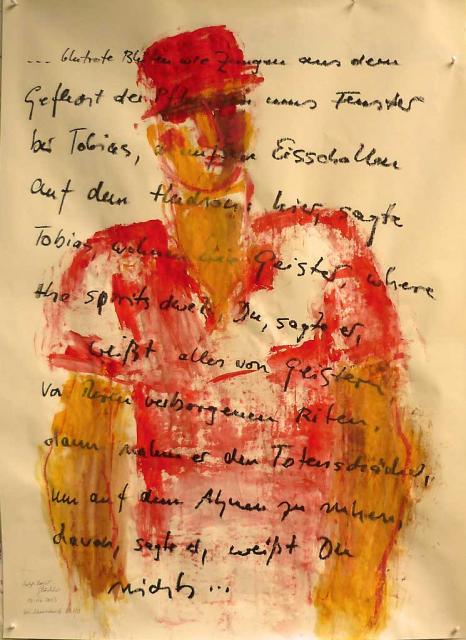 ... blutrote Blüten wie Zungen aus dem
Geflecht der Pflanzen ums Fenster
bei Tobias, draußen Eisschollen
auf dem Hudson: hier, sagte
Tobias, wohnen die Geister, where
the spirits dwell. Du, sagte er,
weißt alles von Geistern
von ihren verborgenen Riten,
dann nahm er den Totenschädel,
um auf dem Ahnen zu ruhen,
davon, sagte er, weißt Du
nichts ...